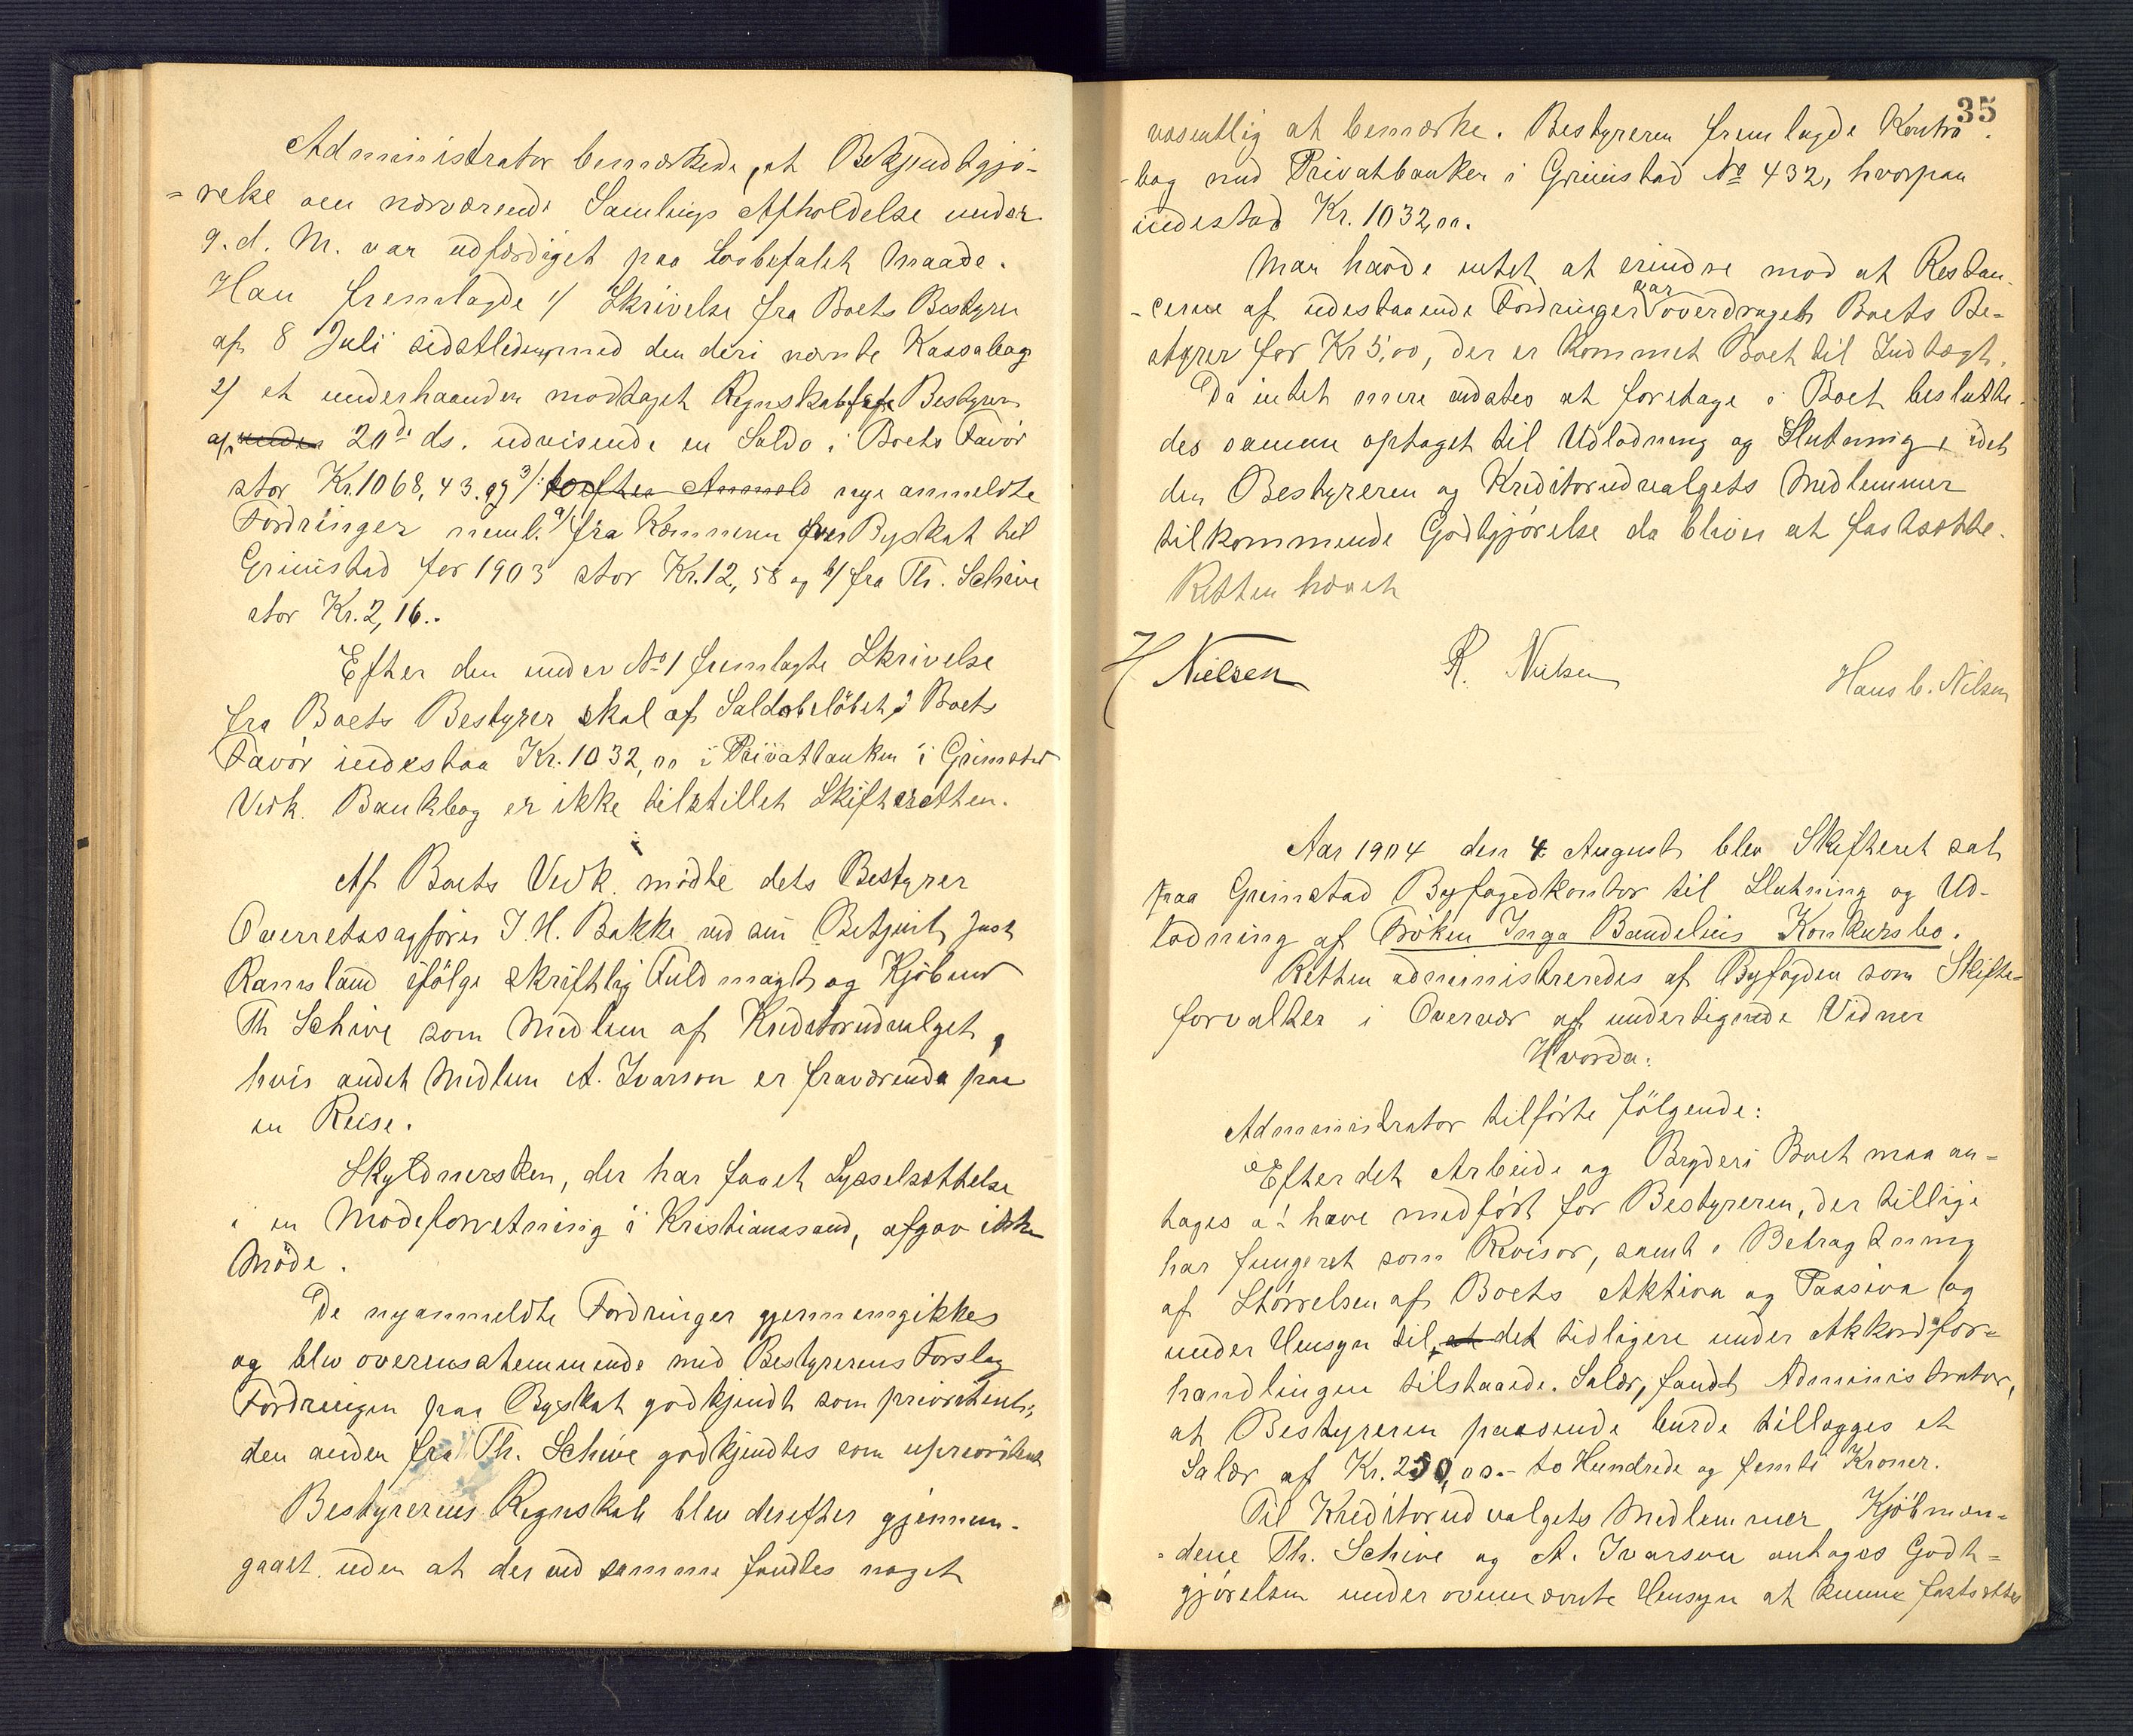 Administrator bemærkede, at Bekjendtgjö-
=relse om nærværende Samlings Afholdelse under
9. d. M. var udfærdiget paa lovbefalet Maade.
Han fremlagde 1/ Skrivelse fra Boets Bestyrer
af 8 Juli sidstleden med den deri nævnte Kassabog
2/ et underhaanden modtaget Regnskab fra Bestyrer
af 20de ds. udvisende en Saldo i Boets Favör
stor Kr. 1068,43. og 3/: nye anmeldte
Fordringer neml. a/ fra Kæmneren for Byskat til
Grimstad for 1903 stor Kr. 12,58 og b/ fra Th. Schive
stor Kr. 2,16..
Efter den under No 1 fremlagte Skrivelse
fra Boets Bestyrer skal af Saldobelöbet i Boets
Favör indestaa Kr. 1032,00 i Privatbanken i Grimstad
Vedk. Bankbog er ikke tilstillet Skifteretten.
Af Boets Vedk. mödte dets Bestyrer
Overretssagförer J. H. Bakke ved sin Betjent Just
Ramsland ifölge skriftlig Fuldmagt og Kjöbmd
Th Schive som Medlem af Kreditorudvalget,
hvis andet Medlem A. Ivarson er fraværende paa
en Reise.
Skyldnersken, der har faaet Sysselsættelse
i en Modeforretning i Kristianssand, afgav ikke
Möde.
De nyanmeldte Fordringer gjennemgikkes
og blev overensstemmende med Bestyrerens Forslag
Fordringen paa Byskat godkjendt som prioritent;
den anden fra Th. Schive godkjendtes som uprioritent
Bestyrerens Regnskab blev derefter gjennem-
gaaet uden at der ved samme fandtes noget
35
væsentlig at bemærke. Bestyreren fremlagde Kontra
-bog med Privatbanken i Grimstad No 432, hvorpaa
indestod Kr. 1032,00.
Man havde intet at erindre mod at Restan-
-cerne af udestaaende Fordringer var overdraget Boets Be-
styrer for Kr 5,00, der er kommet Boet til Indtægt.
Da intet mere udstod at foretage i Boet beslutte-
des samme optaget til Udlodning og Slutning, idet
den Bestyreren og Kreditorudvalgets Medlemmer
tilkommende Godtgjörelse da bliver at fastsætte.
Retten hævet
H Nielsen R. Nielsen Hans C. Nilsen
Aar 1904 den 4 August blev Skifteret sat
paa Grimstad Byfogedkontor til Slutning og Ud-
lodning af Fröken Inga Bandelius Konkursbo.
Retten administreredes af Byfogden som Skifte-
forvalter i Overvær af undertegnede Vidner
Hvorda:
Administrator tilförte fölgende:
Efter det Arbeide og Bryderi Boet maa an-
tages at have medfört for Bestyreren, der tillige
har fungeret som Revisor, samt i Betragtning
af Störrelsen af Boets Aktiva og Passiva og
under Hensyn til at det tidligere under Akkordfor-
handlingen tilstaaede Salær, fandt Administrator,
at Bestyreren passende burde tillægges et
Salær af Kr. 250,00.- to Hundrede og femti Kroner.
Til Kreditorudvalgets Medlemmer Kjöbmæn-
-dene Th. Schive og A. Ivarson antages Godt-
gjörelsen under ovennævnte Hensyn at kunne fastsættes